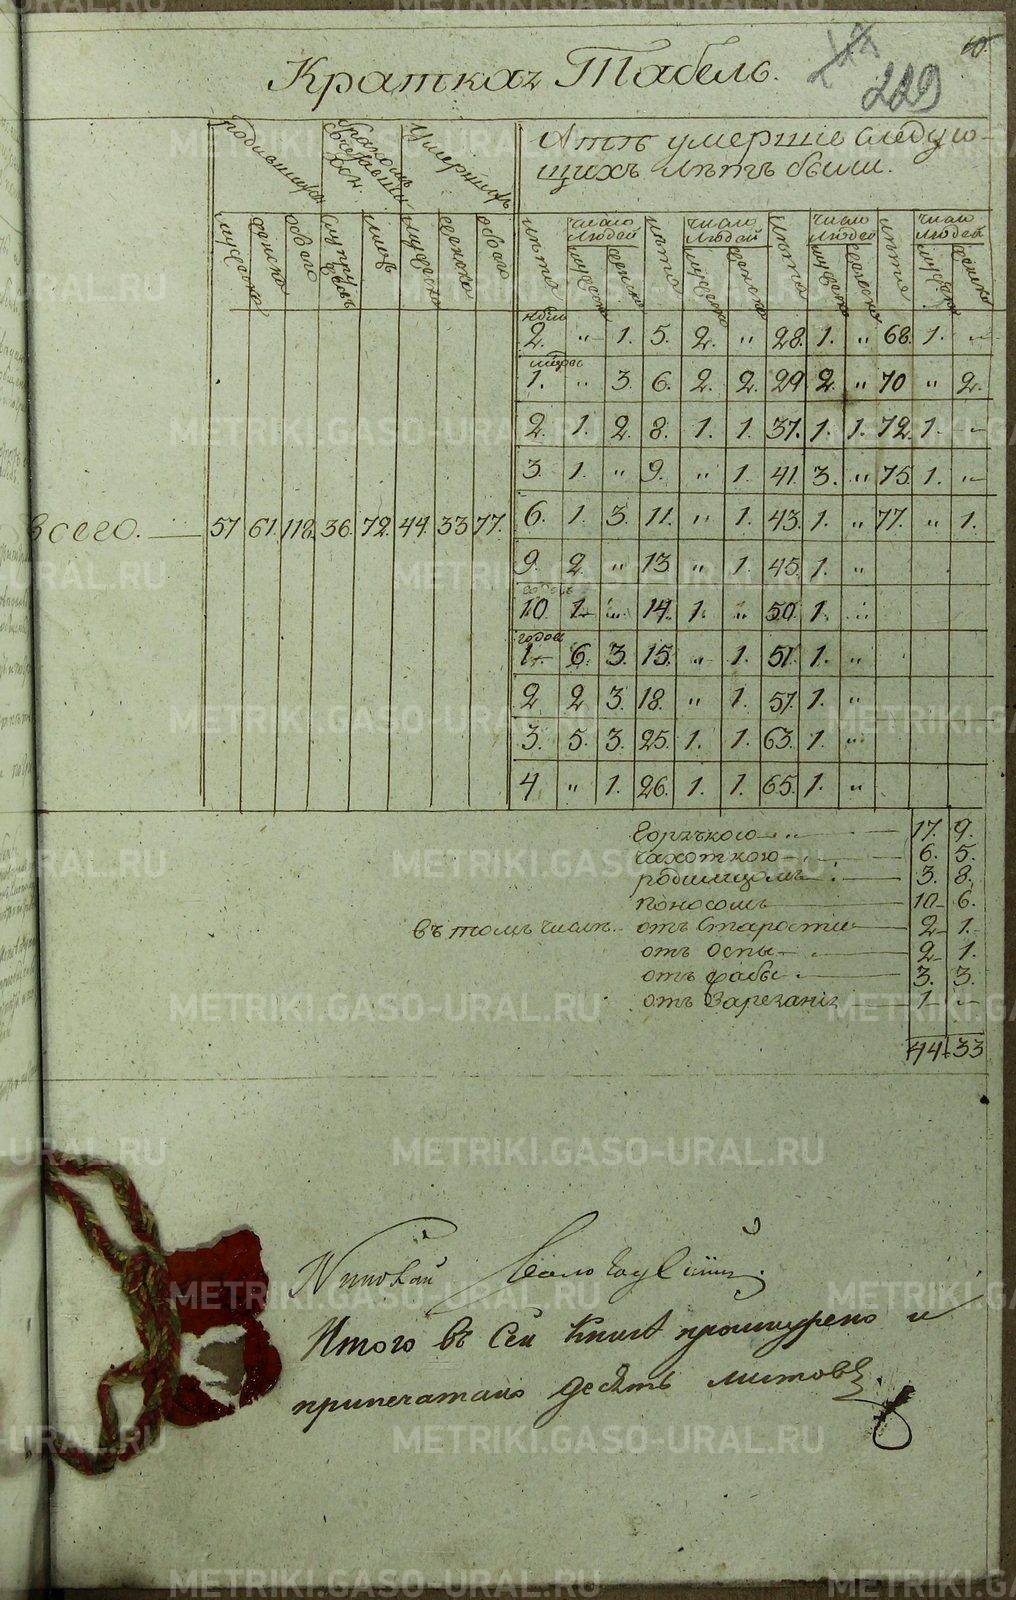 10.
229
Краткая Табель.
родившихся
бракомъ сочетавшихся
умершихъ
Лѣтъ умершіе следую-
щихъ лѣтъ были.
мужеска
женска
обоего
супру
жествъ
лицъ
мужеска
женска
обоего
лѣта
число людей
мужеска
женска
лѣта
число людей
мужеска
женска
лѣта
число людей
мужеска
женска
лѣта
число людей
мужеска
женска
2. " 1. 5. 2. " 28. 1. " 68. 1. "
1. " 3. 6. 2. 2. 29. 2. " 70 " 2.
2. 1. 2. 8. 1. 1. 37. 1. 1. 72. 1. "
3. 1. " 9. " 1. 41. 3. " 75. 1. "
всего. 57 61. 118. 36. 72. 44. 33 77. 6. 1. 3. 11. " 1. 43. 1. " 77. " 1.
9. 2. " 13. " 1. 45. 1. "
10. 1. " 14. 1. " 50. 1. "
годов
1. 6. 3. 15. " 1. 51. 1. "
2 2 3. 18. " 1. 57. 1. "
3. 5. 3. 25. 1. 1. 63. 1. "
4 " 1. 26. 1. 1. 65. 1. "
горячкою 17. 9.
чахоткою 6. 5.
родимцомъ 3. 8.
поносомъ 10 6.
въ томъ числѣ отъ старости 2 1.
отъ оспы 2 1.
отъ жабы 3. 3.
отъ зарезанія 1 "
44. 33
Николай
Итого въ сей книгѣ прошнурено и
припечатано десѣть листовъ.
METRIKI.GASO-URAL.RU